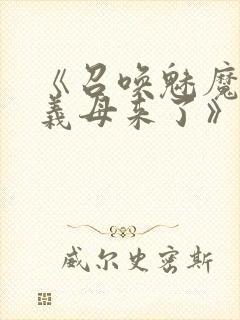 《召唤魅魔
義母来了》
威尔史密斯